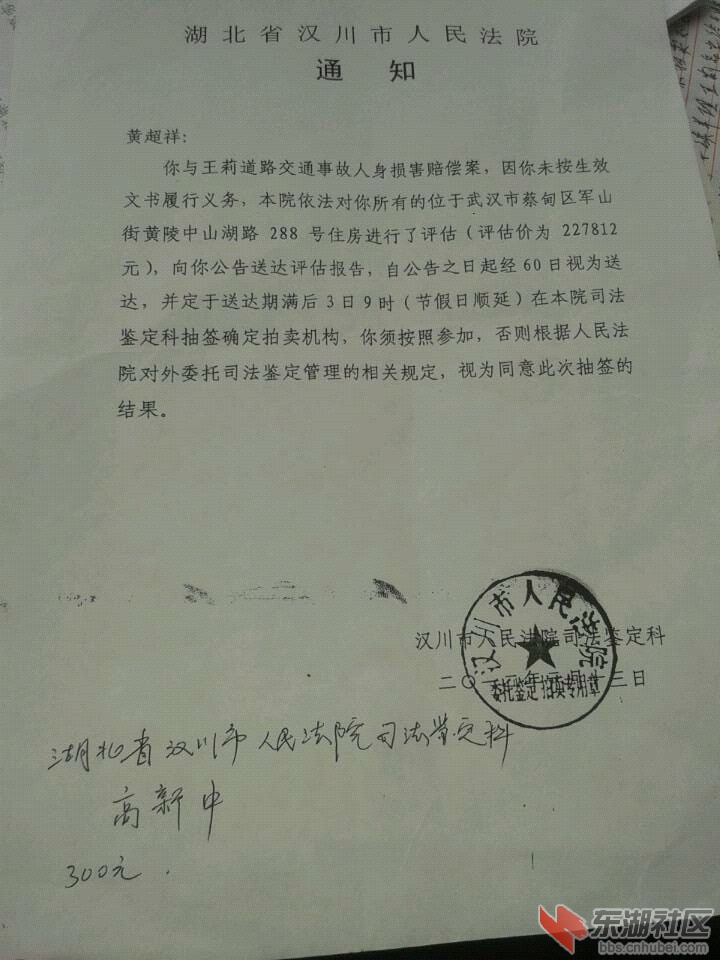 湖北省汉川市人民法院
通 知
黄超祥：
你与王莉道路交通事故人身损害赔偿案，因你未按生效
文书履行义务，本院依法对你所有的位于武汉市蔡甸区军山
街黄陵中山湖路 288 号住房进行了评估（评估价为 227812
元），向你公告送达评估报告，自公告之日起经 60 日视为送
达，并定于送达期满后 3 日 9 时（节假日顺延）在本院司法
鉴定科抽签确定拍卖机构，你须按照参加，否则根据人民法
院对外委托司法鉴定管理的相关规定，视为同意此次抽签的
结果。
汉川市人民法院司法鉴定科
汉川市人民法院
委托鉴定拍卖专用章
二〇一 年 三日
湖北省汉川市人民法院司法鉴定科
高新中
300元.
东湖社区
bbs.cnhubei.com